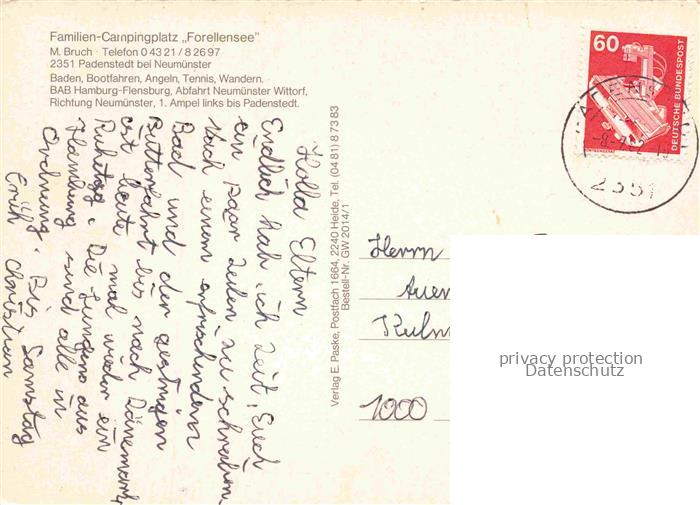 Familien-Campingplatz „Forellensee"
M. Bruch · Telefon 0 43 21 / 8 26 97
2351 Padenstedt bei Neumünster
Baden, Bootfahren, Angeln, Tennis, Wandern.
BAB Hamburg-Flensburg, Abfahrt Neumünster Wittorf,
Richtung Neumünster, 1. Ampel links bis Padenstedt.
Hallo Eltern
Endlich hab ich Zeit, Euch
ein paar Zeilen zu schreiben.
Nach einem erfrischendem
Bad und der gestrigen
Butterfahrt bis nach Dänemark
ist heute mal wieder ein
Ruhetag. Die Jungens aus
Hamburg sind alle in
Ordnung. Bis Samstag
Erich Christian
Verlag E. Paske, Postfach 1664, 2240 Heide, Tel. (04 81) 8 73 83
Bestell-Nr. GW 2014/1
60
DEUTSCHE BUNDESPOST
2351
Herrn
Auer
Kulm
1000
privacy protection
Datenschutz